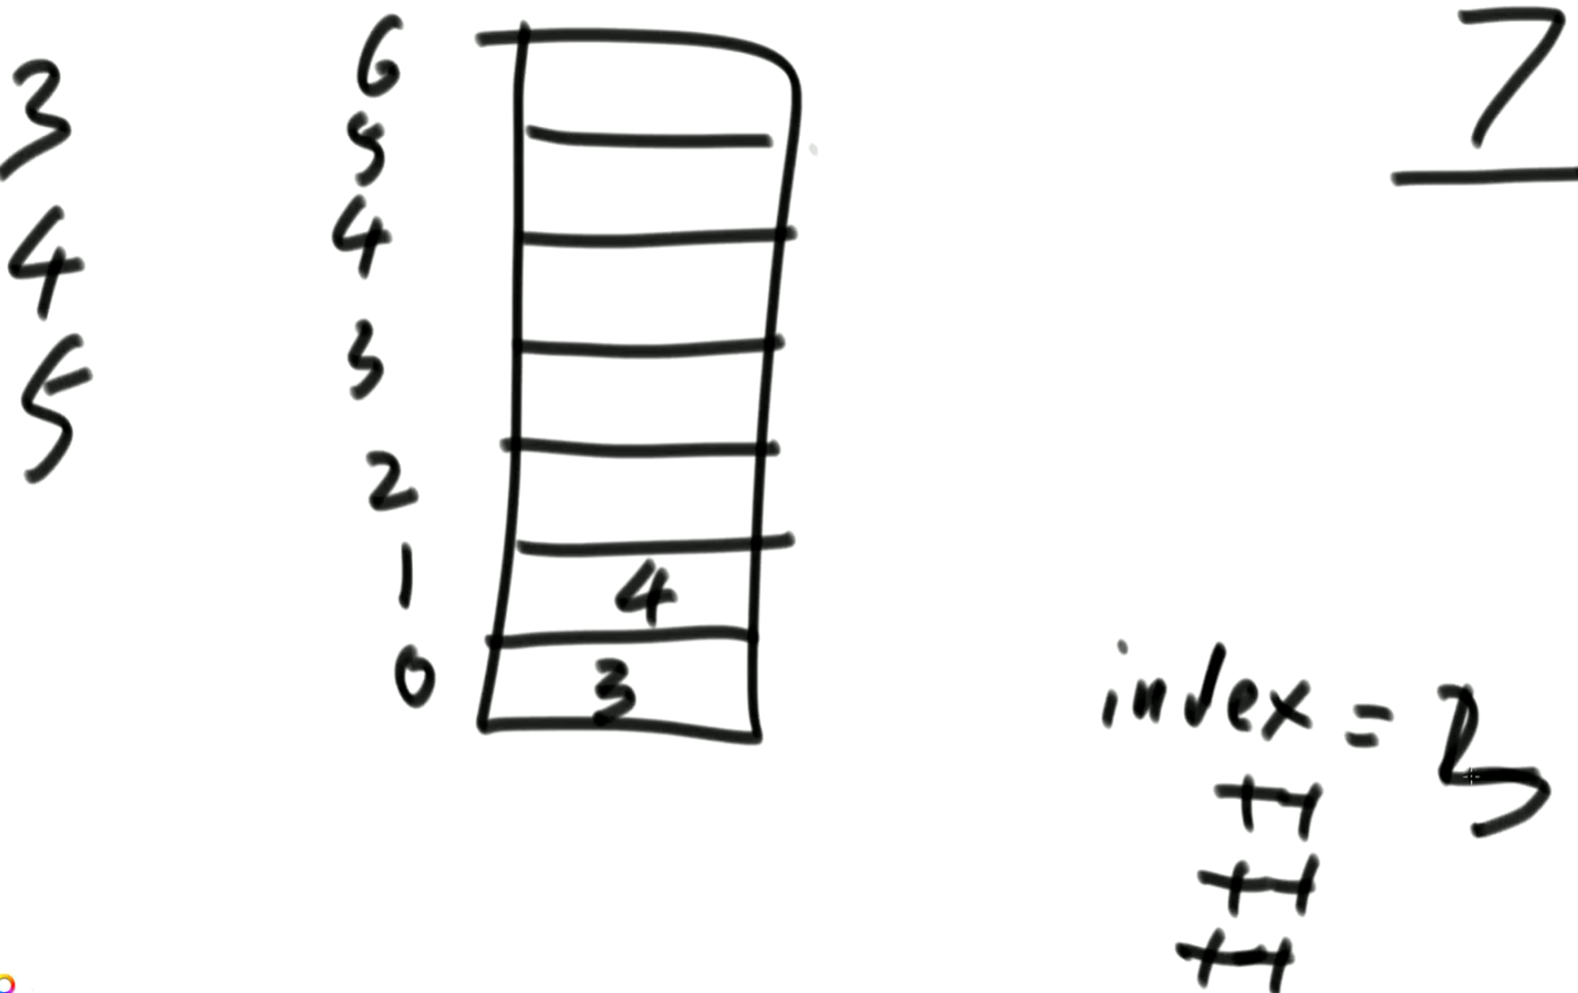 3
4
5
6
5
4
3
2
1
0
4
3
7
index = 3
++
++
++